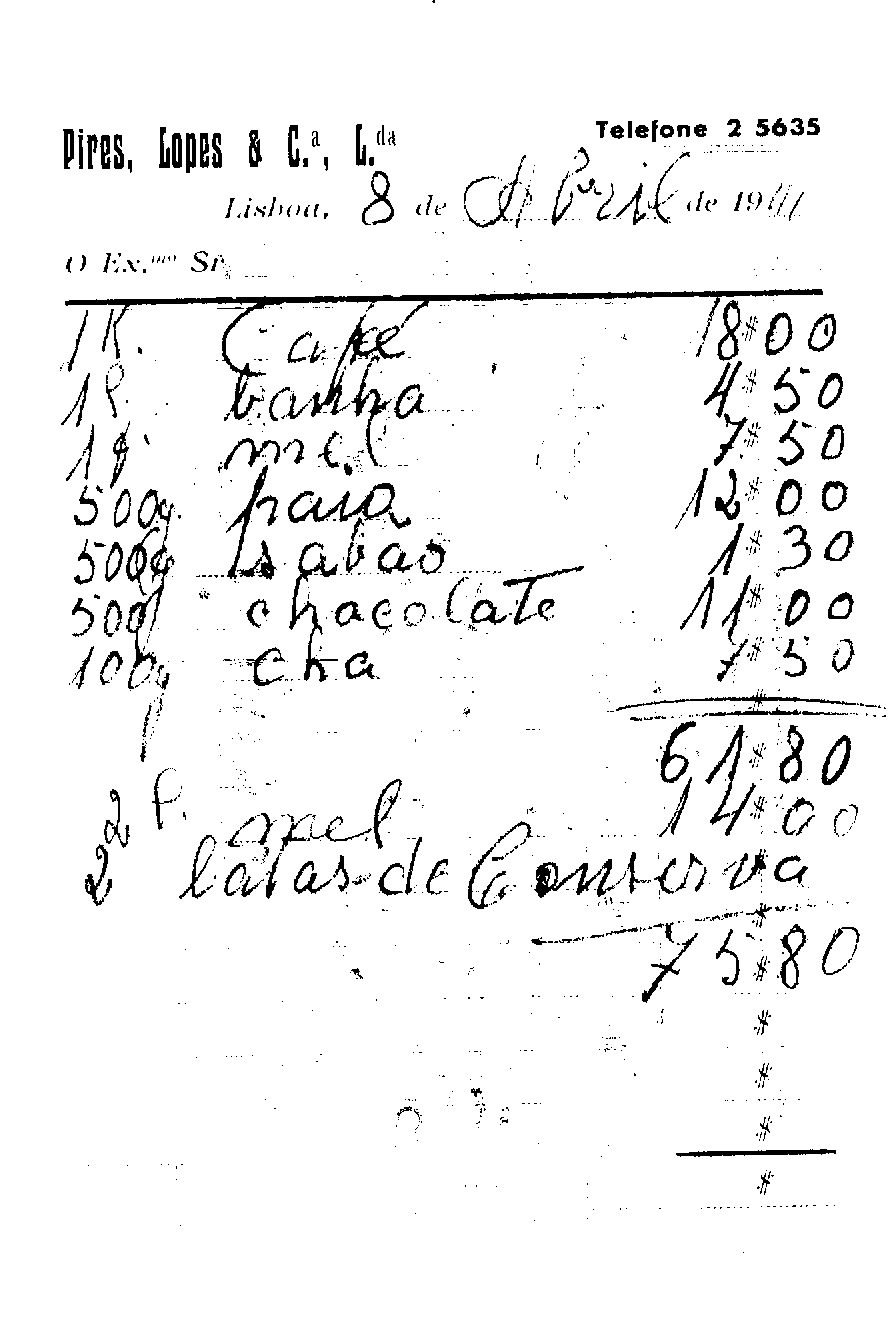 Pires, Lopes & C.ª, L.da
Telefone 2 5635
Lisboa, 8 de Abril de 1941
O Ex.mo Sr.
1K. Café 18$00
1 banha 4$50
1 mel 7$50
500g paio 12$00
500g sabao 1$30
500g chacolate 11$00
100g cha 7$50
61$80
2 P. mel 14$00
2 latas de Conserva
75$80